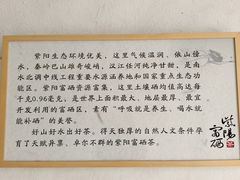 紫阳生态环境优美，这里气候温润、依山傍
水，秦岭巴山雄奇峻峭，汉江任河纯净甘甜，是南
水北调中线工程重要水源涵养地和国家重点生态功
能区。紫阳富硒资源富集，这里土壤均值高达每
千克0.96毫克，是世界上面积最大、地层最厚、最宜
开发利用的富硒区，素有“呼吸就是养生、喝水就
能补硒”的美誉。
好山好水出好茶。得天独厚的自然人文条件孕
育了天赋异禀、卓尔不群的紫阳富硒茶。
紫阳
富硒